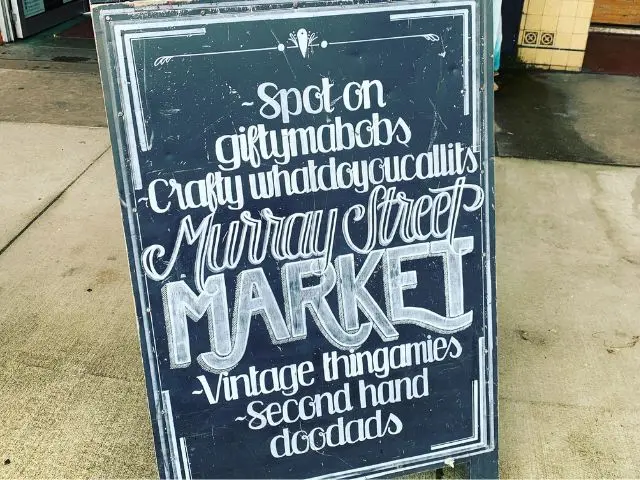 ~Spot on
giftymabobs
~Crafty whatdoyoucallits
Murray Street
MARKET
~Vintage thingamies
~Second hand
doodads